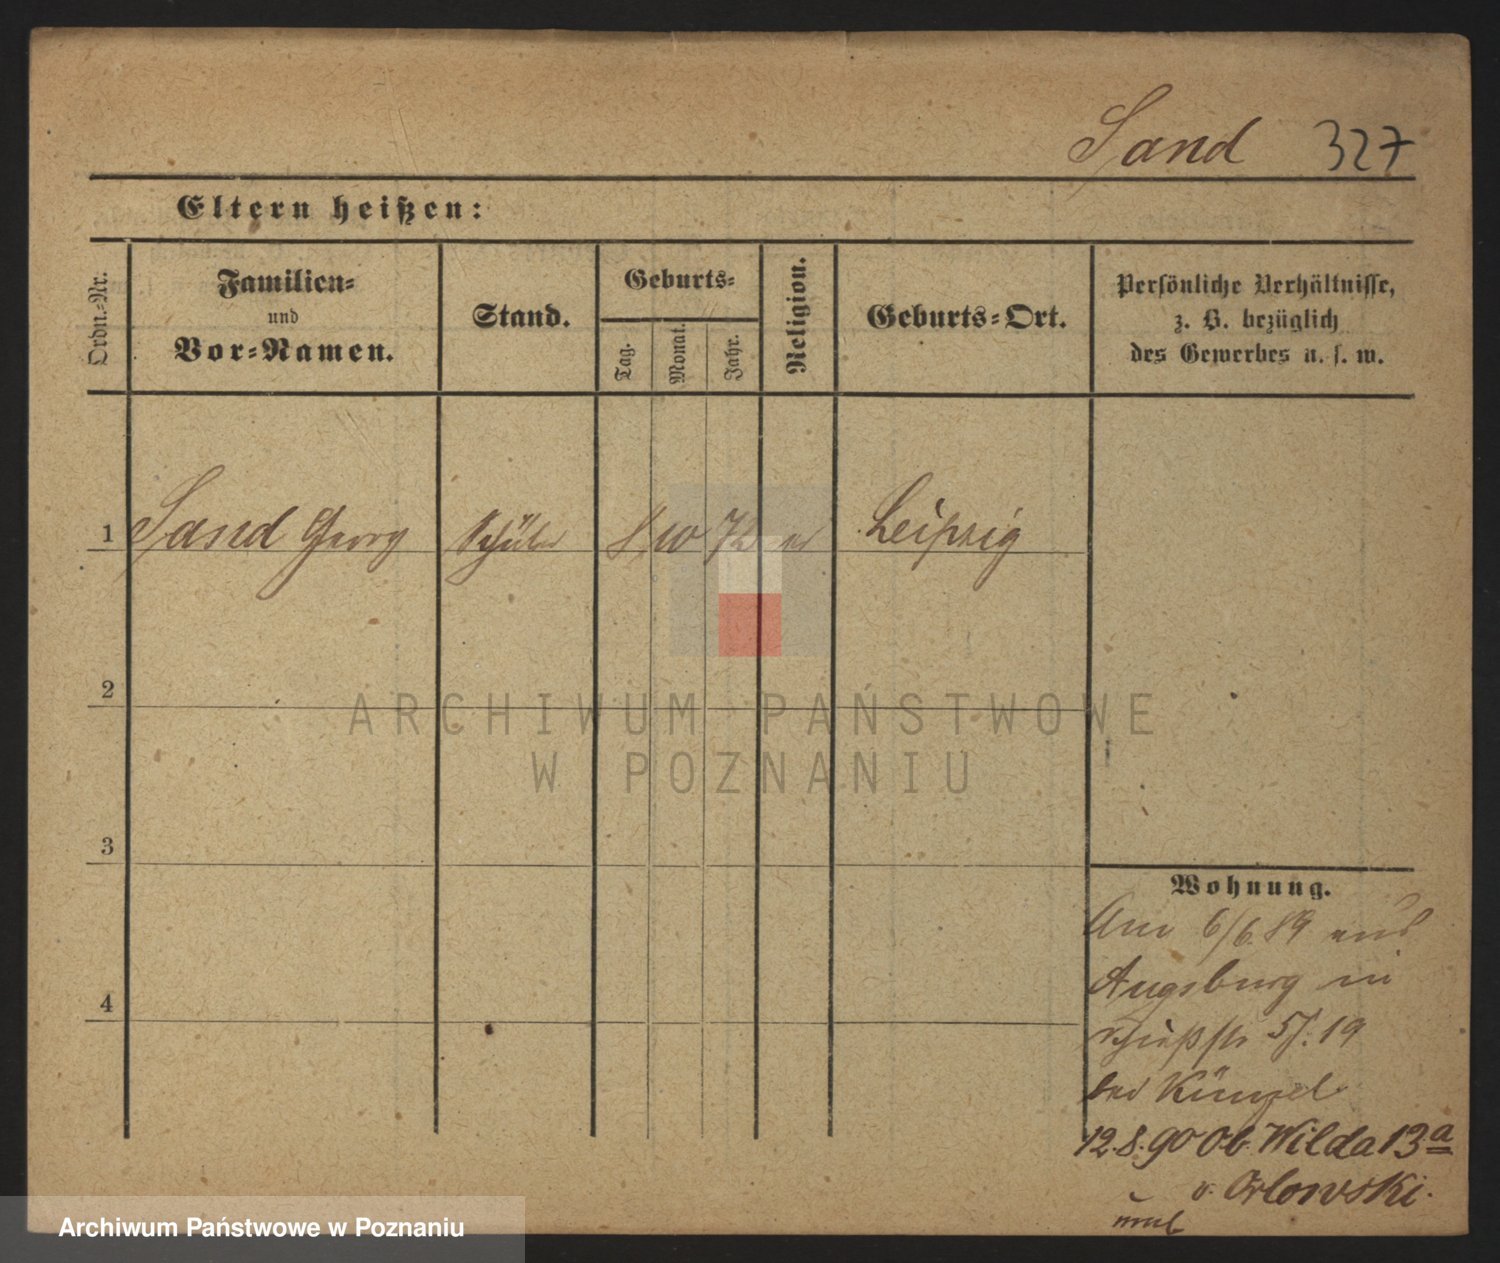 Sand 327
Eltern heißen:
Ordn.-Nr.
Familien-
und
Vor-Namen.
Stand.
Geburts-
Tag.
Monat.
Jahr.
Religion.
Geburts-Ort.
Persönliche Verhältnisse,
z. B. bezüglich
des Gewerbes u. s. w.
1 Sand Georg Schüler 8 10 72 ev Leipzig
2
3
4
Wohnung.
Am 6/6 89 aus
Augsburg in
Schießstr 5/. 19
bei Künzel
12.8.90 Ob. Wilda 13a
v. Orlowski.
ARCHIWUM PAŃSTWOWE
W POZNANIU
Archiwum Państwowe w Poznaniu